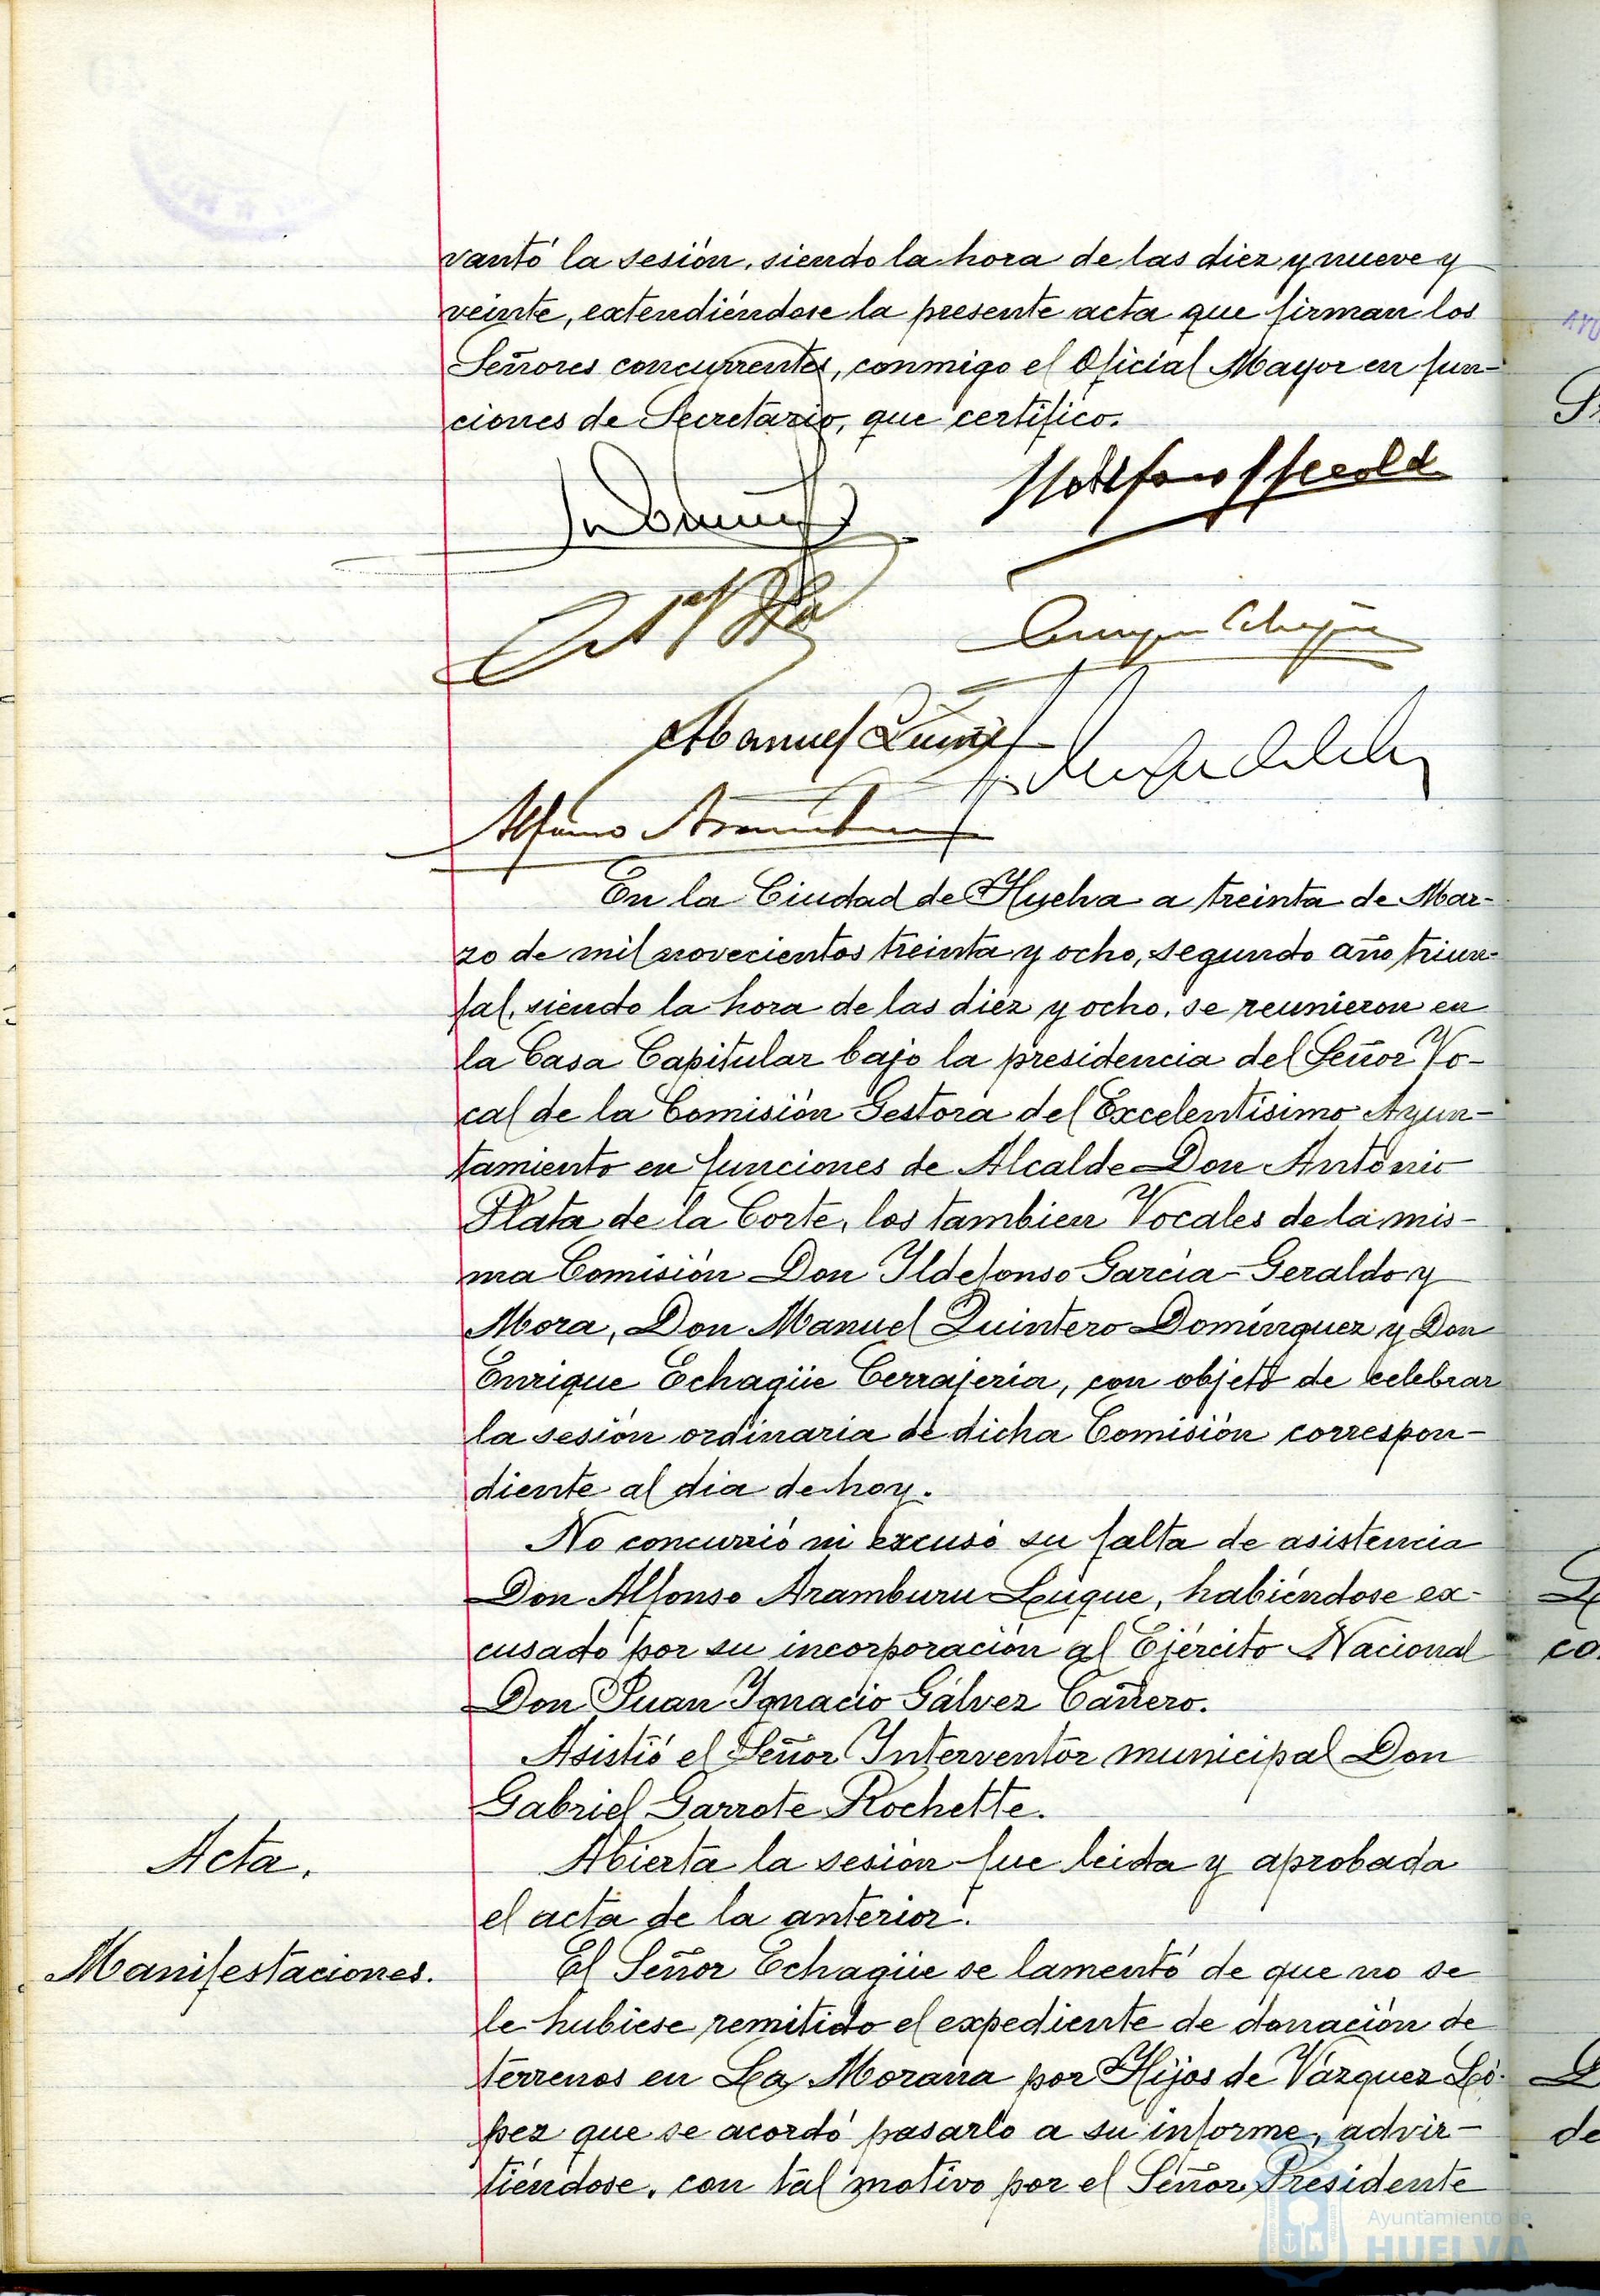 vantó la sesión, siendo la hora de las diez y nueve y
veinte, extendiéndose la presente acta que firman los
Señores concurrentes, conmigo el Oficial Mayor en fun-
ciones de Secretario, que certifico.
Manuel
Alfonso Aramburu
En la Ciudad de Huelva a treinta de Mar-
zo de mil novecientos treinta y ocho, segundo año triun-
fal, siendo la hora de las diez y ocho, se reunieron en
la Casa Capitular bajo la presidencia del Señor Vo-
cal de la Comisión Gestora del Excelentísimo Ayun-
tamiento en funciones de Alcalde Don Antonio
Plata de la Corte, los tambien Vocales de la mis-
ma Comisión Don Ildefonso Garcia-Geraldo y
Mora, Don Manuel Quintero Domínguez y Don
Enrique Echagüe Cerrajeria, con objeto de celebrar
la sesión ordinaria de dicha Comisión correspon-
diente al dia de hoy.
No concurrió ni excusó su falta de asistencia
Don Alfonso Aramburu Luque, habiéndose ex-
cusado por su incorporación al Ejército Nacional
Don Juan Ignacio Gálvez Cañero.
Asistió el Señor Interventor municipal Don
Gabriel Garrote Rochette.
Acta.
Abierta la sesión fue leida y aprobada
el acta de la anterior.
Manifestaciones.
El Señor Echagüe se lamentó de que no se
le hubiese remitido el expediente de donación de
terrenos en La Morana por Hijos de Vázquez Ló-
pez que se acordó pasarlo a su informe, advir-
tiéndose, con tal motivo por el Señor Presidente
Ayuntamiento de
HUELVA